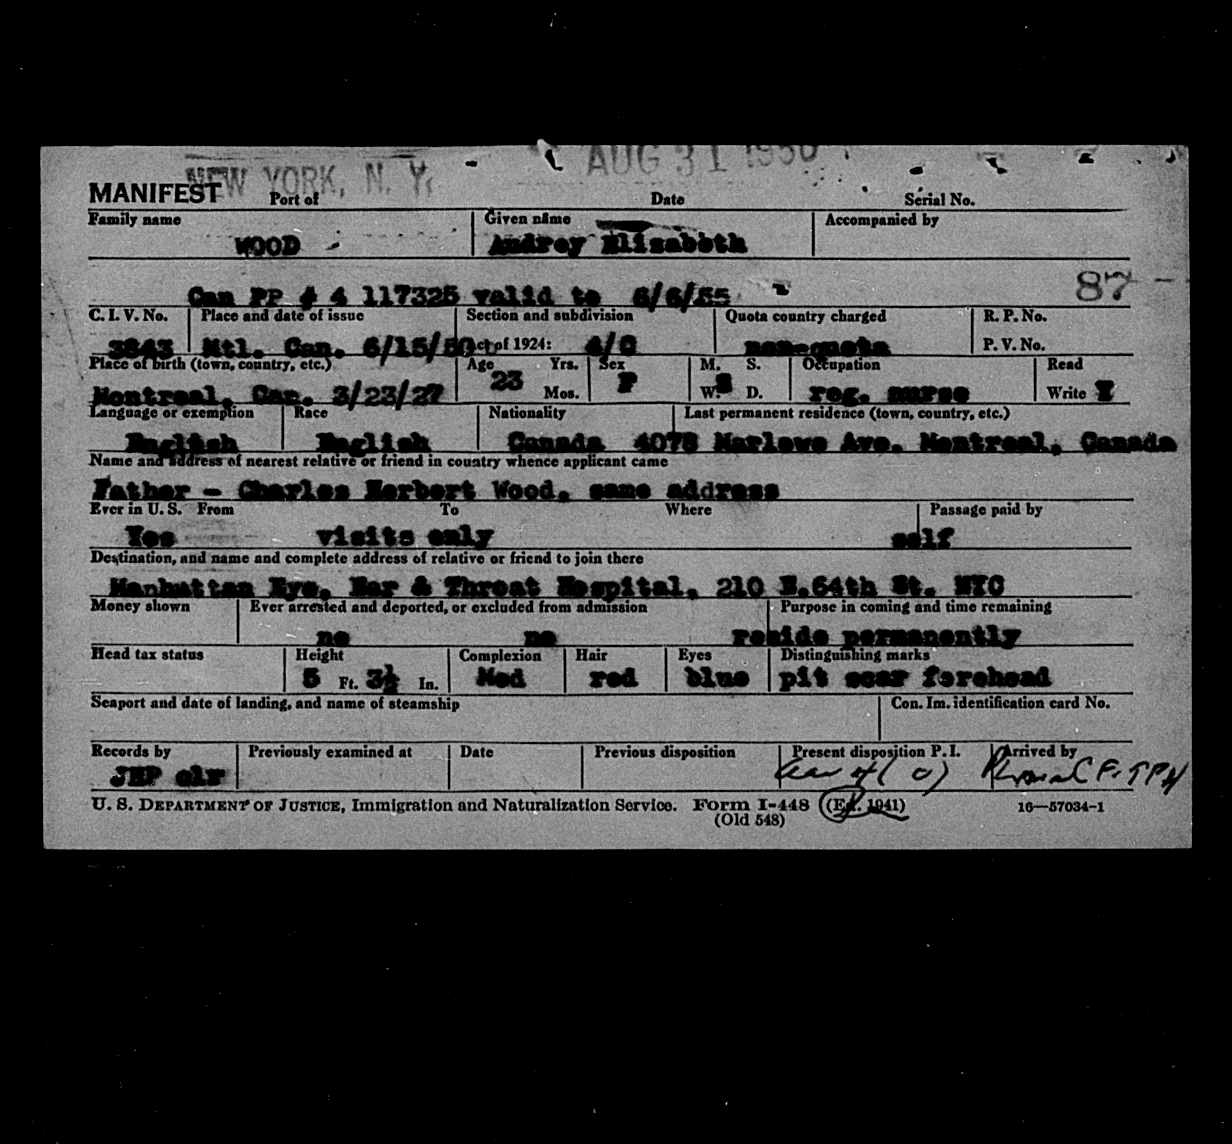 NEW YORK, N. Y. AUG 31 1950
MANIFEST Port of Date Serial No.
Family name Given name Accompanied by
WOOD Audrey Elizabeth
87
Can PP # 4 117325 valid to 6/6/55
C. I. V. No. Place and date of issue Section and subdivision Quota country charged R. P. No.
3843 Mtl. Can. 6/15/50 Act of 1924: 4/C non-quota P. V. No.
Place of birth (town, country, etc.) Age Yrs. Sex M. S. Occupation Read
Montreal, Can. 3/23/27 23 Mos. F W. S D. reg. nurse Write
Language or exemption Race Nationality Last permanent residence (town, country, etc.)
English English Canada 4078 Marlowe Ave. Montreal, Canada
Name and address of nearest relative or friend in country whence applicant came
Father - Charles Herbert Wood, same address
Ever in U. S. From To Where Passage paid by
Yes visits only self
Destination, and name and complete address of relative or friend to join there
Manhattan Eye, Ear & Throat Hospital, 210 E.64th St. NYC
Money shown Ever arrested and deported, or excluded from admission Purpose in coming and time remaining
no no reside permanently
Head tax status Height Complexion Hair Eyes Distinguishing marks
5 Ft. 3½ In. Med red blue pit scar forehead
Seaport and date of landing, and name of steamship Con. Im. identification card No.
Records by Previously examined at Date Previous disposition Present disposition P. I. Arrived by
U. S. DEPARTMENT OF JUSTICE, Immigration and Naturalization Service. Form I-448 (Ed. 1941) 16—57034-1
(Old 548)